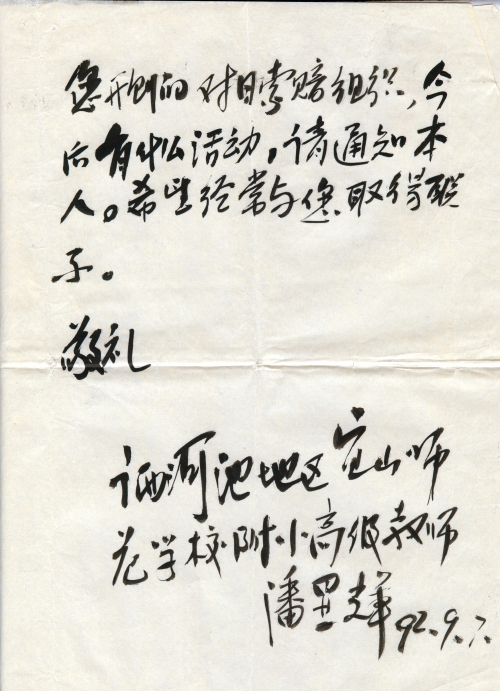 您所创的对日索赔组织,今
后有什么活动,请通知本
人。希望经常与您取得联
系。
敬礼
广西河池地区宜山师
范学校附小高级教师
潘 辉 92.9.7.